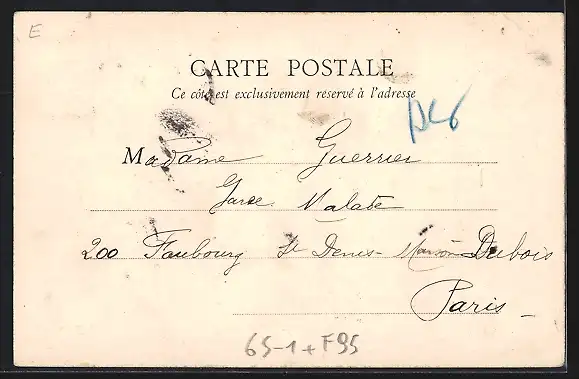 E
CARTE POSTALE
Ce côté est exclusivement reservé à l'adresse
Madame Guerrier
Garde Malade
200 Faubourg St Denis - Maison Dubois
Paris -
65-1+F95